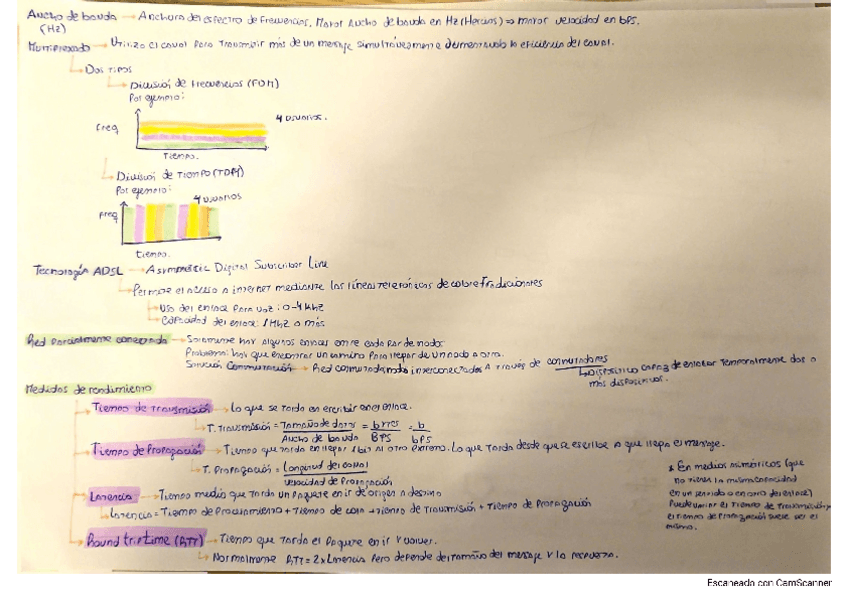 Ancho de banda → Anchura del espectro de frecuencias. Mayor Ancho de banda en Hz (Hercios) ⇒ mayor velocidad en bps.
(Hz)
Multiplexado → Utiliza el canal para transmitir más de un mensaje simultáneamente aumentando la eficiencia del canal.
Dos tipos
División de frecuencias (FDM)
Por ejemplo:
4 usuarios.
Freq
Tiempo.
División de Tiempo (TDM)
Por ejemplo:
4 usuarios
Freq
tiempo.
Tecnología ADSL → Asymmetric Digital Subscriber Line
Permite el acceso a internet mediante las líneas telefónicas de cobre tradicionales
Uso del enlace para voz: 0-4 khz
Capacidad del enlace: 1 Mhz o más
Red parcialmente conectada → Solamente hay algunos enlaces entre cada par de nodos
Problema: hay que encontrar un camino para llegar de un nodo a otro.
Solución Conmutación → Red conmutada interconectados A través de conmutadores
Dispositivo capaz de enlazar temporalmente dos o
más dispositivos.
Medidas de rendimiento
Tiempo de transmisión → Lo que se tarda en escribir en el enlace.
T. Transmisión = Tamaño de datos / Ancho de banda = bytes / BPS = b / bps
Tiempo de Propagación → Tiempo que tarda en llegar 1 bit al otro extremo. Lo que tarda desde que se escribe a que llega el mensaje.
T. Propagación = Longitud del canal / velocidad de Propagación
* En medios asimétricos (que
no tienen la misma capacidad
en un sentido o en otro del enlace)
Puede variar el tiempo de Transmisión y
el tiempo de Propagación suele ser el
mismo.
Latencia → Tiempo medio que tarda un paquete en ir de origen a destino
Latencia = Tiempo de Procesamiento + Tiempo de cola + Tiempo de Transmisión + Tiempo de Propagación
Round trip time (RTT) → Tiempo que tarda el paquete en ir y volver.
Normalmente RTT = 2 x Latencia pero depende del tamaño del mensaje y la respuesta.
Escaneado con CamScanner